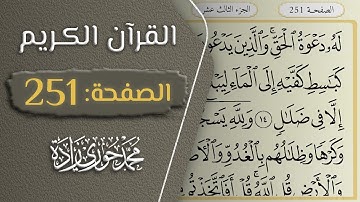 القرآن الكريم
الصفحة: 251
محمد حوري زادة
الصفحة 251
الجزء الثالث عشر
لَهُۥ دَعْوَةُ ٱلْحَقِّ وَٱلَّذِينَ يَدْعُو
كَبَٰسِطِ كَفَّيْهِ إِلَى ٱلْمَآءِ لِيَبْ
إِلَّا فِى ضَلَٰلٍ ١٤ وَلِلَّهِ يَسْجُ
وَكَرْهًا وَظِلَٰلُهُم بِٱلْغُدُوِّ وَٱلْءَا
وَٱلْأَرْضِ قُلِ ٱللَّهُ قُلْ أَفَٱتَّخَذْتُم